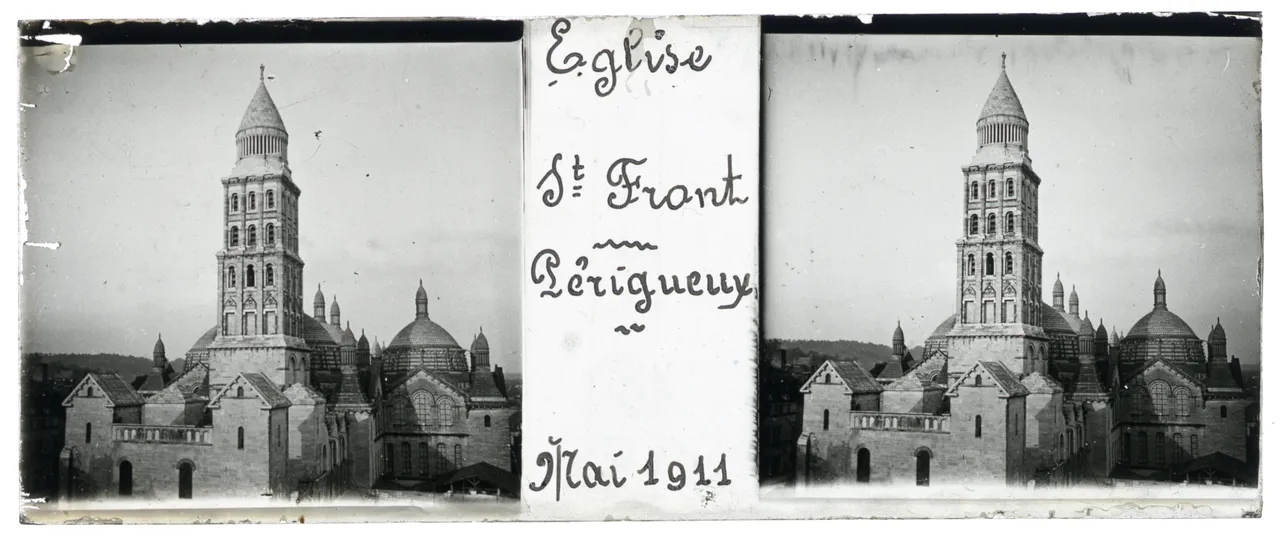 Eglise
St Front
Périgueux
Mai 1911